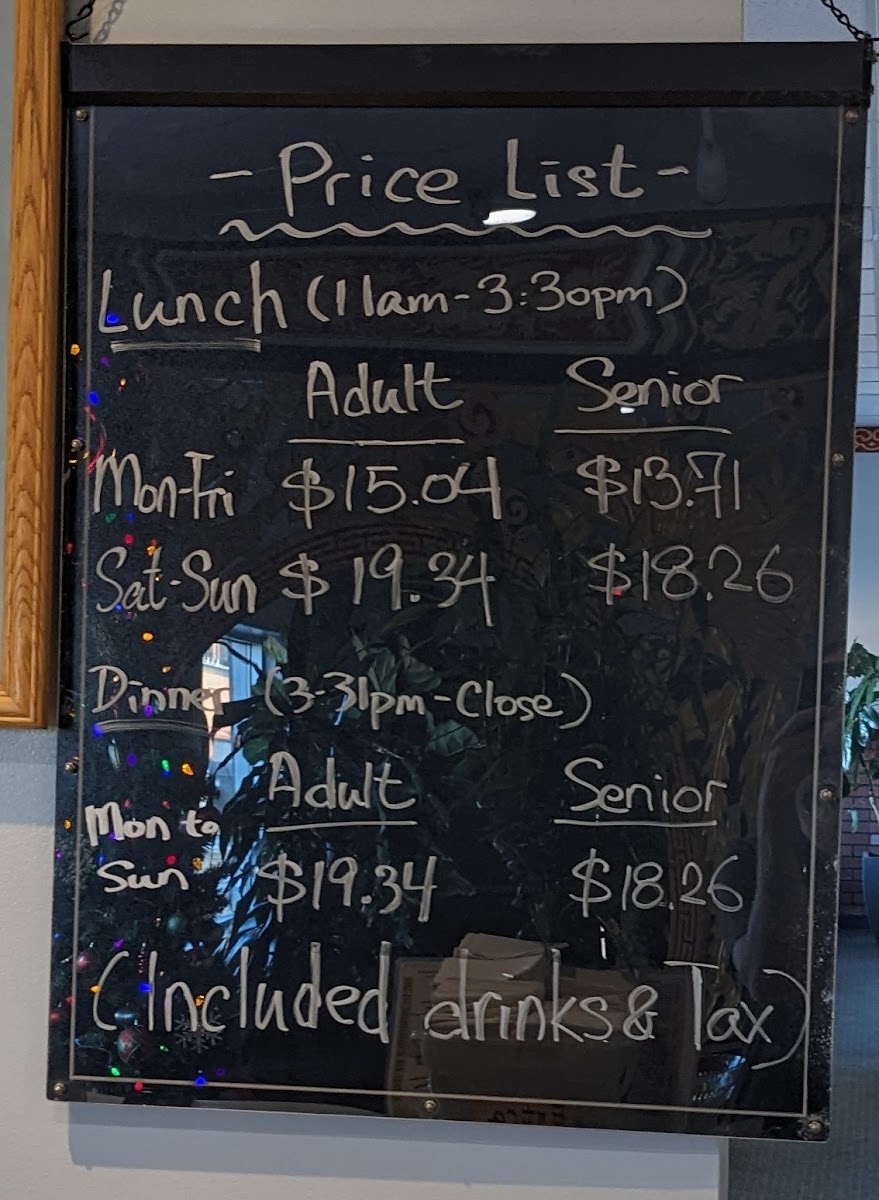 - Price List -
Lunch (11am-3:30pm)
Adult Senior
Mon-Fri $15.04 $13.71
Sat-Sun $19.34 $18.26
Dinner (3-31pm-Close)
Adult Senior
Mon to
Sun $19.34 $18.26
(Included drinks & Tax)